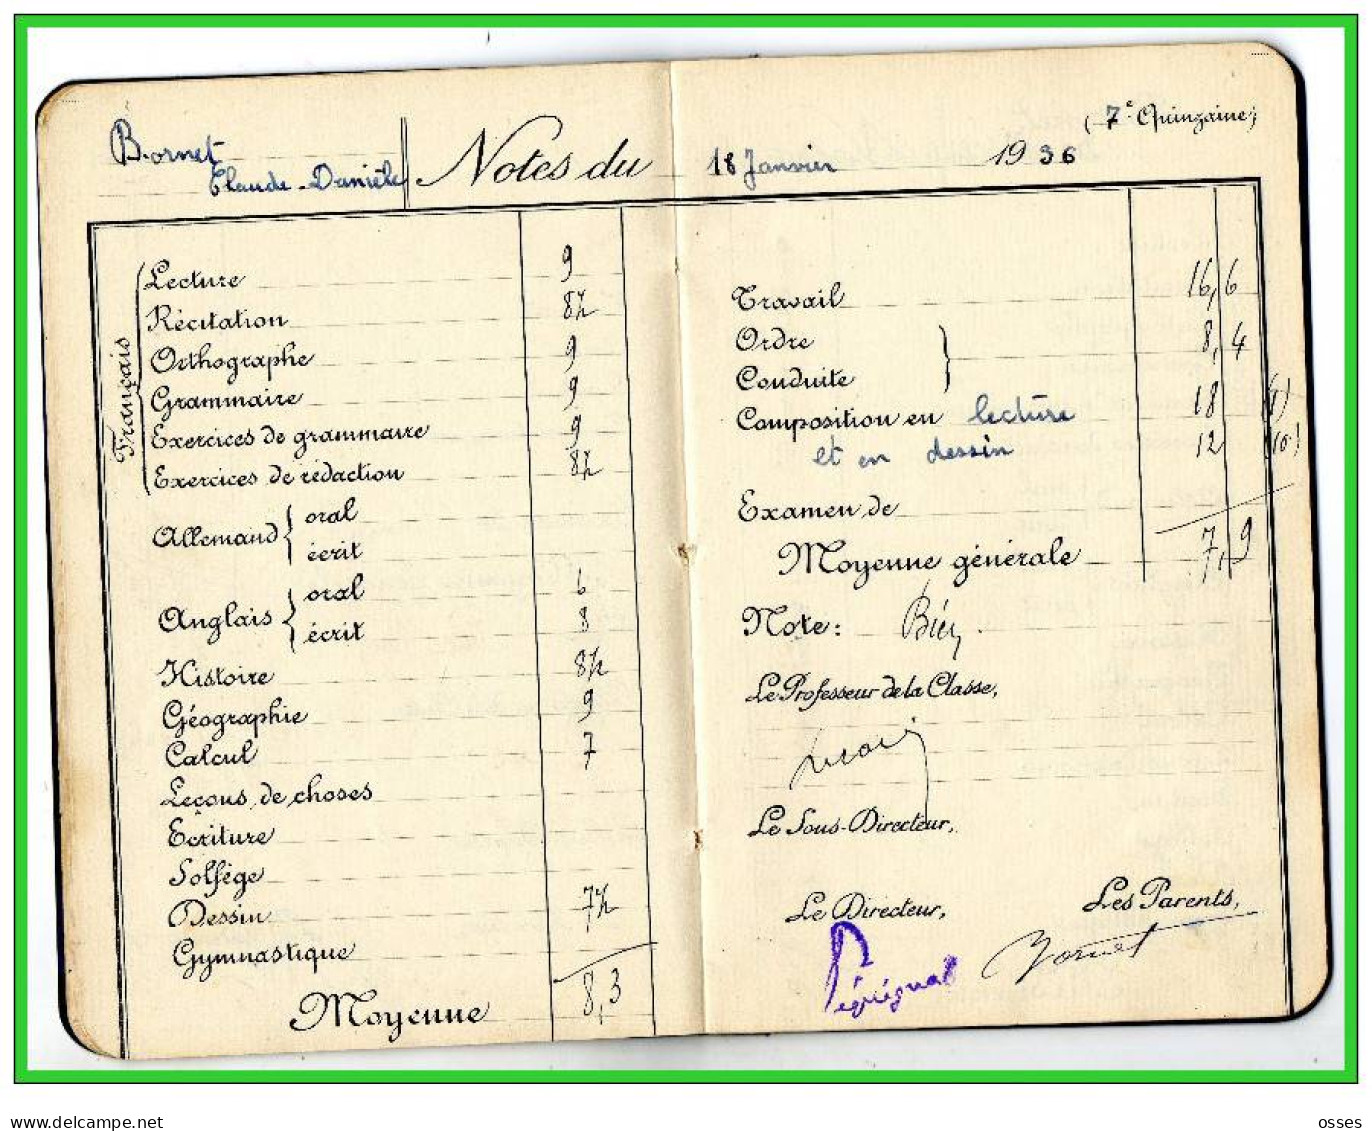 Bornet
Claude-Danièle
Notes du 18 Janvier 1936
(7e Quinzaine)
Français
Lecture 9
Récitation 8½
Orthographe 9
Grammaire 9
Exercices de grammaire 9
Exercices de rédaction 8½
Allemand oral
écrit
Anglais oral 6
écrit 8
Histoire 8½
Géographie 9
Calcul 7
Leçons de choses
Ecriture
Solfège
Dessin 7½
Gymnastique
Moyenne 8,3
Travail 16,6
Ordre 8,4
Conduite
Composition en lecture 18
et en dessin 12 (10)
Examen de
Moyenne générale 7,9
Note: Bien
Le Professeur de la Classe,
Le Sous-Directeur,
Le Directeur,
Les Parents,
Péquignat
Bornet
delcampe.net
osses